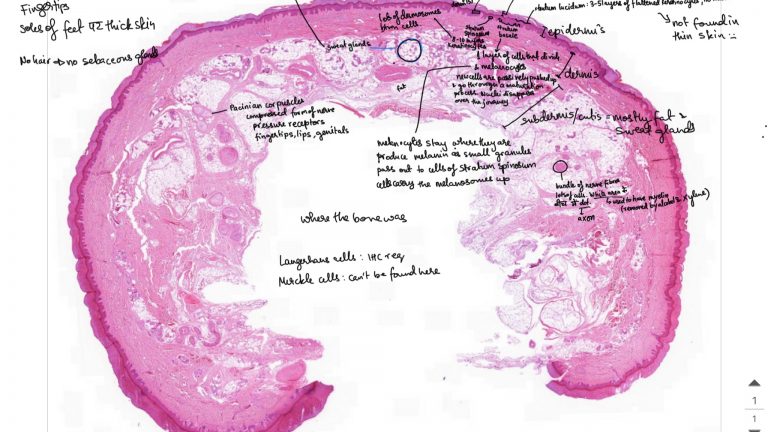 Fingertips
soles of feet thick skin
No hair → no sebaceous glands
sweat glands
lots of desmosomes
stratum
spinosum
8-10 layers
keratinocytes
stratum
basale
stratum lucidum: 3-5 layers of flattened keratinocytes, no
not found in
thin skin
epidermis
1 layer of cells that divide
& melanocytes
new cells are passively pushed up
& go through a maturation
process. Nuclei disappear
over the journey
dermis
fat
subdermis/cutis = mostly fat &
sweat glands
Pacinian corpuscles
compressed form of nerve
pressure receptors
fingertips, lips, genitals
melanocytes stay where they are
produce melanin as small granules
pass out to cells of stratum spinosum
cells carry the melanosomes up
bundle of nerve fibres
lots of cells. White area
used to have myelin
(removed by alcohol & xylene)
axon
where the bone was
Langerhans cells: IHC req
Merckle cells: can't be found here
1
1